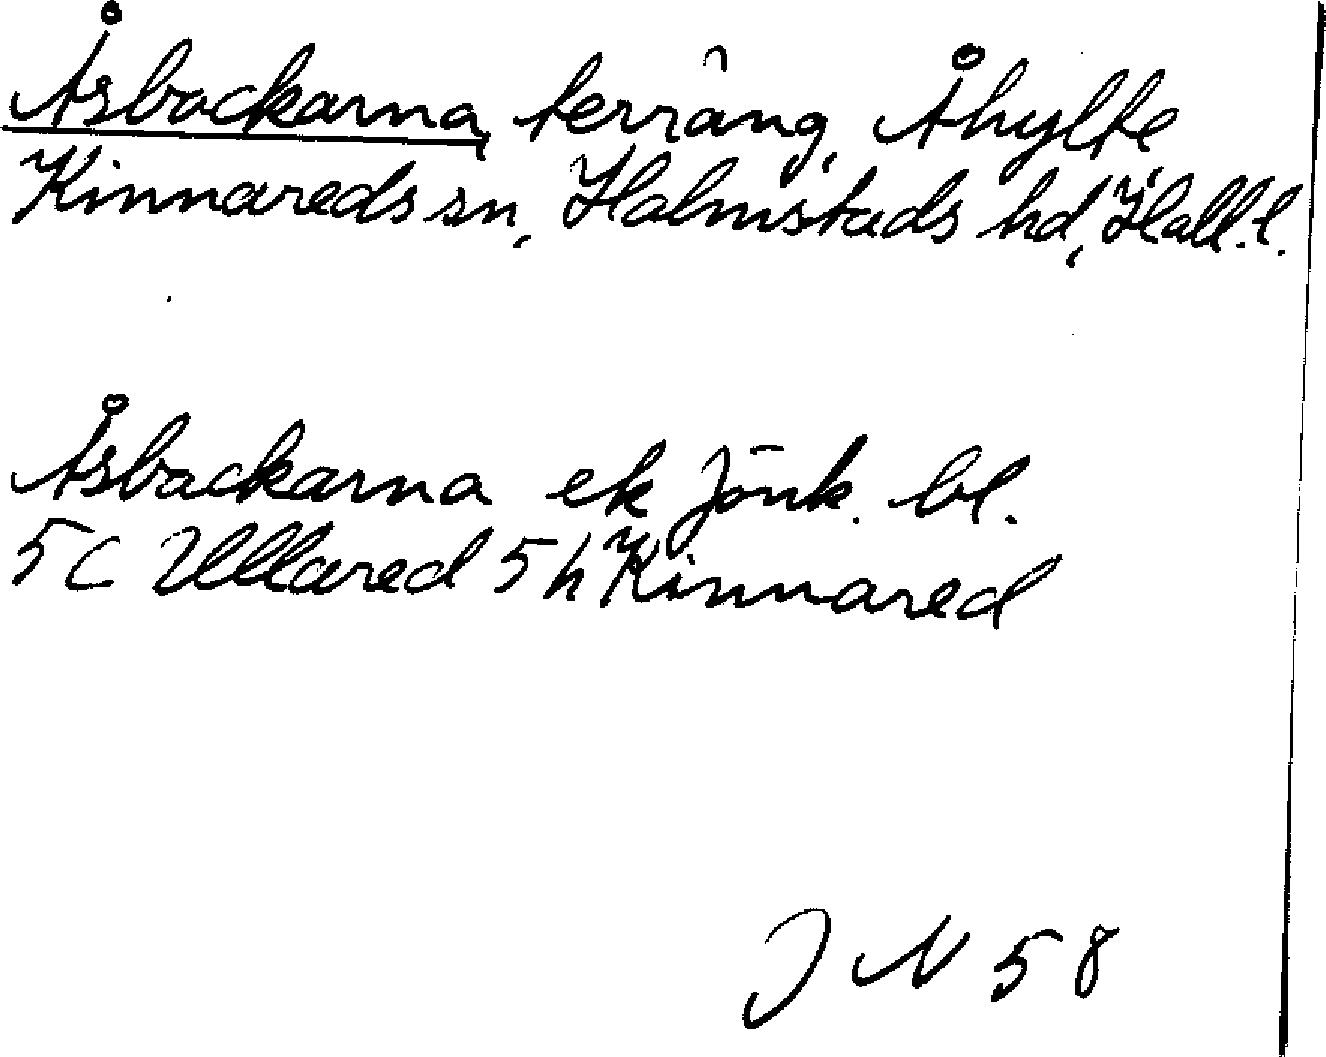 Åsbackarna, terräng, Åhylte
Kinnareds sn, Halmstads hd, Hall.l.
Åsbackarna ek Jönk. bl.
5C Ullared 5h Kinnared
J N 58